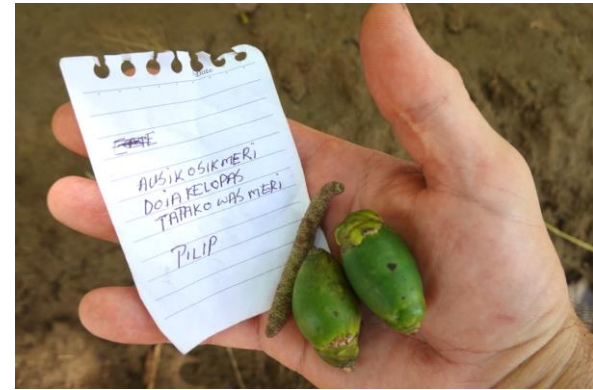 Date
AUSIKOSIKMERI
DOIA KELOPAS
TATAKO WAS MERI
PILIP